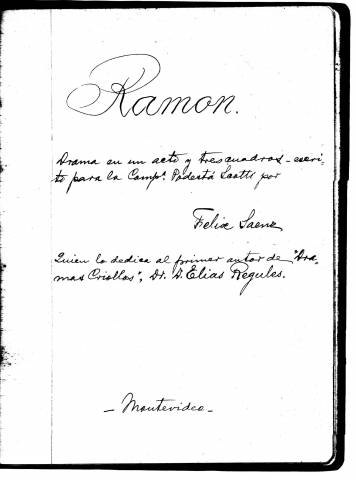 Ramon.
Drama en un acto y tres cuadros - escri-
to para la Compª. Podestá Scotti por
Felix Saenz
Quien lo dedica al primer autor de "Dra-
mas Criollos", Dr. D. Elias Regules.
- Montevideo -